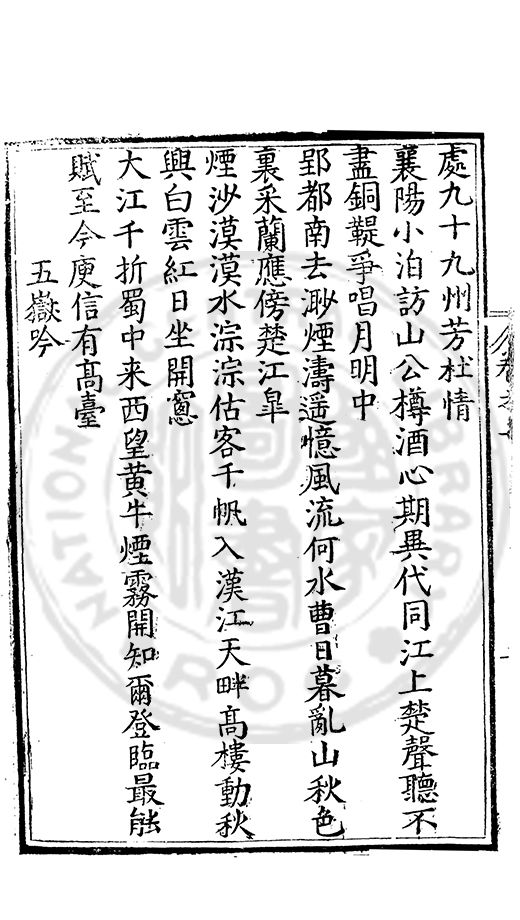 處九十九州芳杜情
襄陽小泊訪山公樽酒心期異代同江上楚聲聽不
盡銅鞮爭唱月明中
郢都南去渺煙濤遥憶風流何水曹日暮亂山秋色
裏采蘭應傍楚江皐
煙沙漠漠水淙淙估客千帆入漢江天畔高樓動秋
興白雲紅日坐開窻
大江千折蜀中来西望黄牛煙霧開知爾登臨最能
賦至今庾信有髙臺
五嶽吟